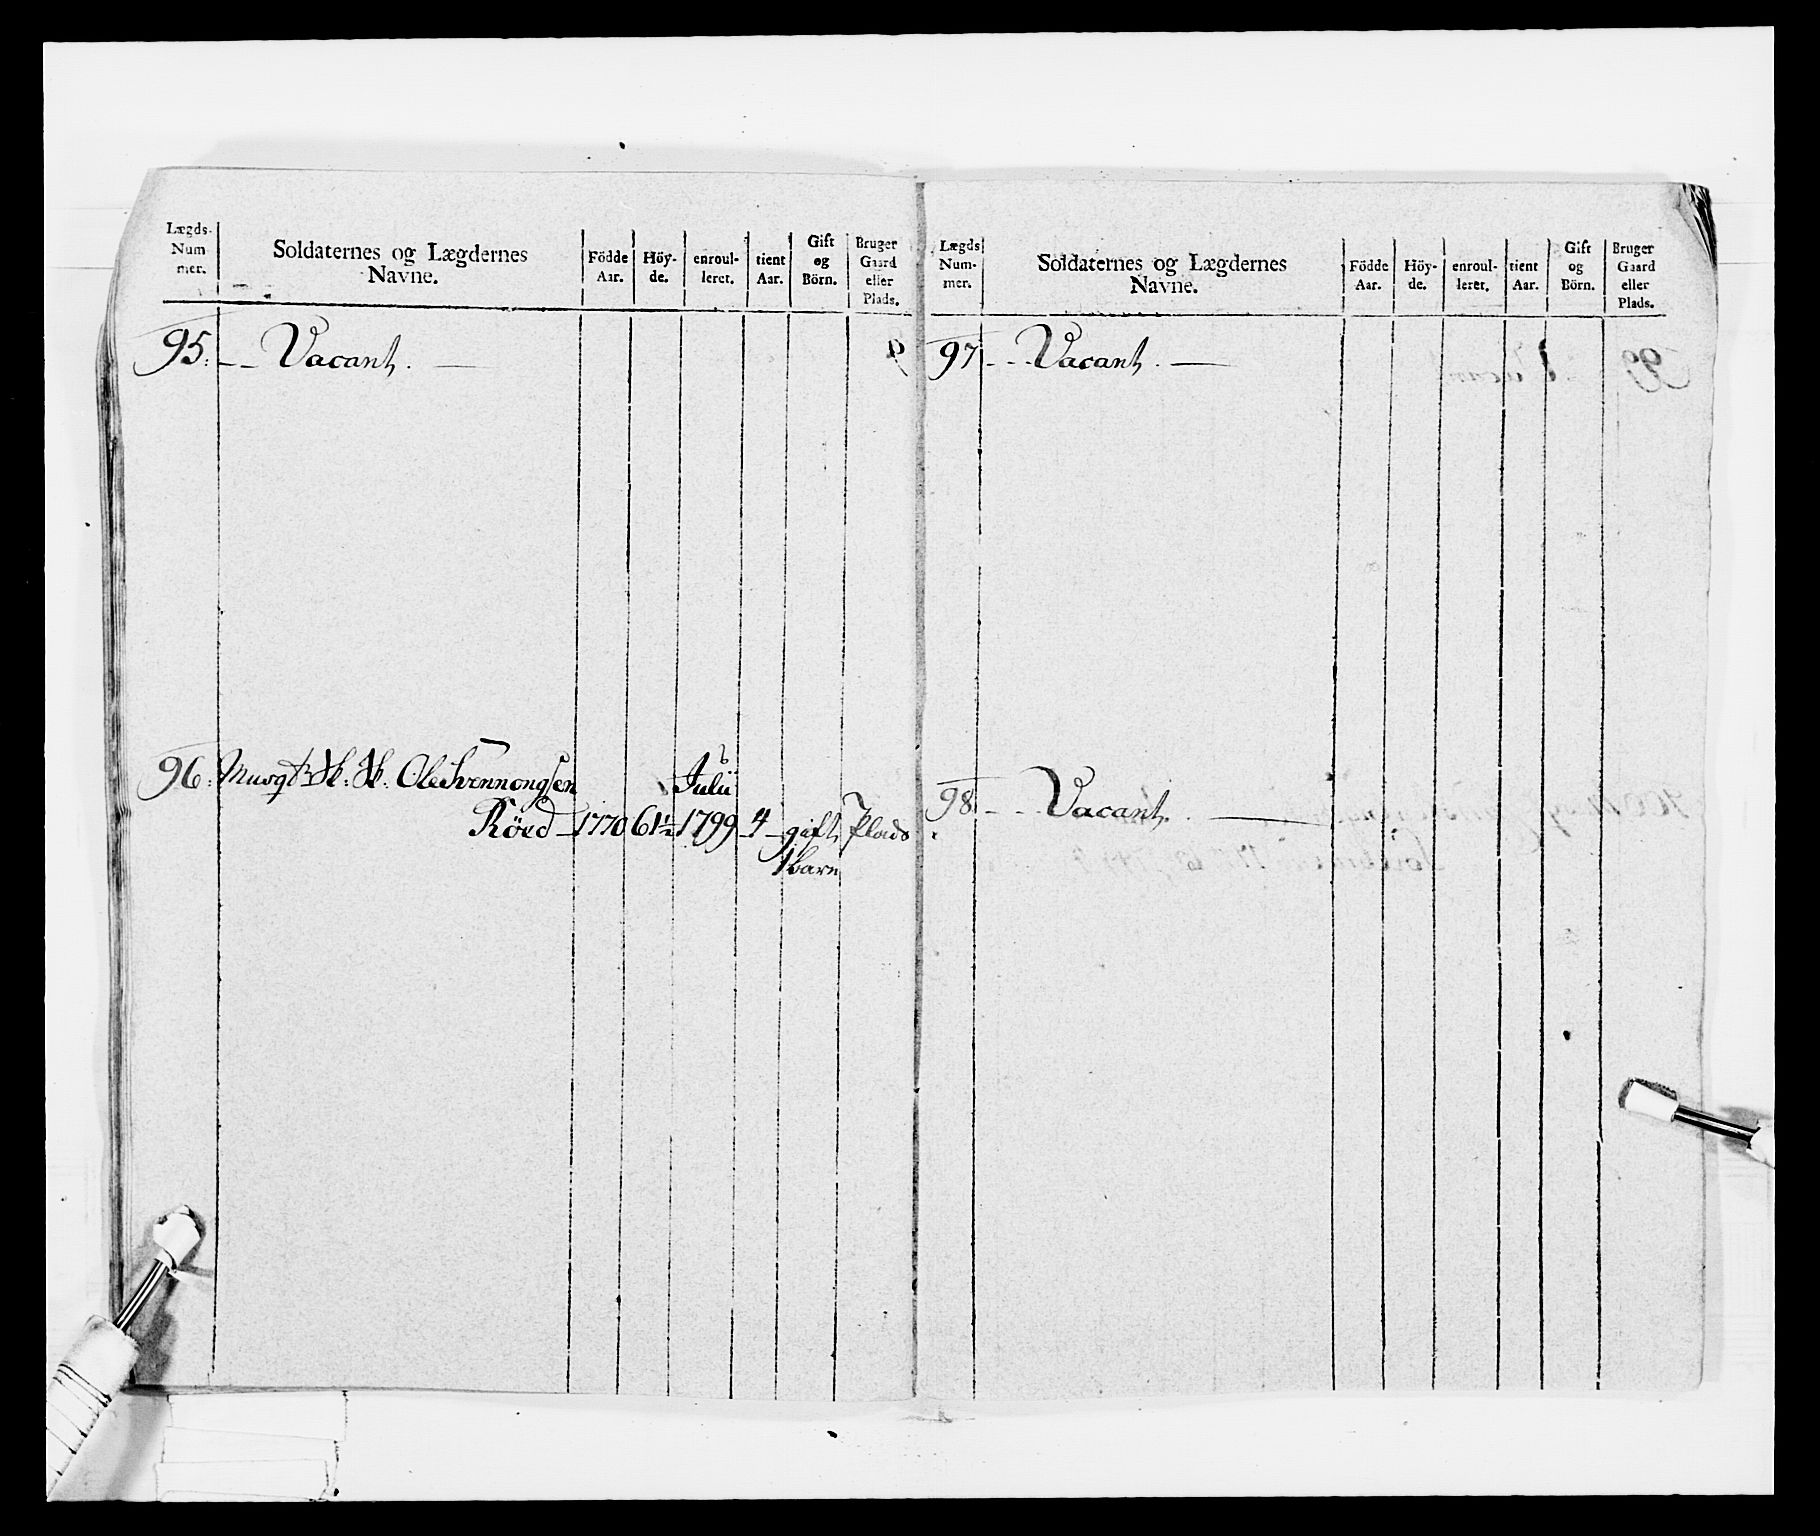 Lægds- Num mer. Soldaternes og Lægdernes Navne. Födde Aar. Höy- de. enroul- leret. tient Aar. Gift og Börn. Bruger Gaard eller Plads.
95. Vacant.
96. Ole Svennongsen Julii
Röed 1770 61½ 1799 4 gift Plads
1 barn
Lægds Num- mer. Soldaternes og Lægdernes Navne. Födde Aar. Höy- de. enroul- leret. tient Aar. Gift og Börn. Bruger Gaard eller Plads.
97. Vacant.
98. Vacant.